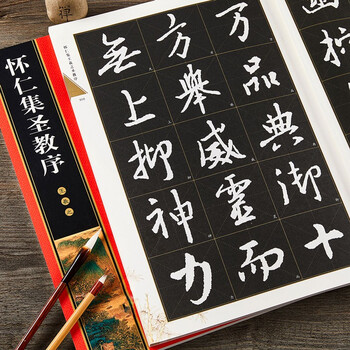 怀仁集圣教序
万品典御十
方舉威靈而
無上抑神力